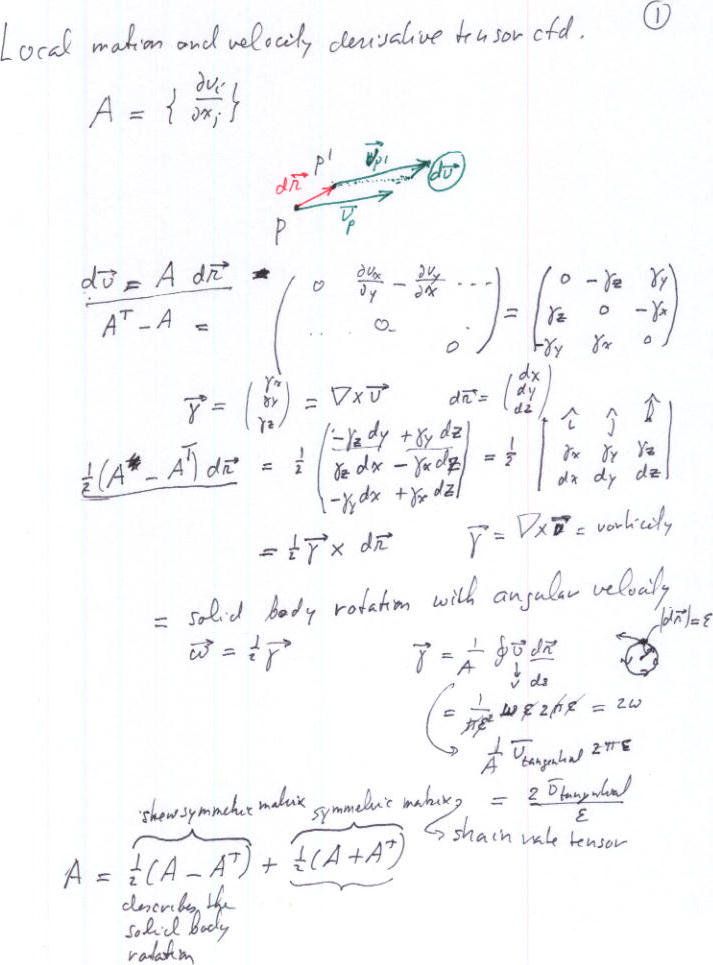 ①
Local motion and velocity derivative tensor ctd.
A = { ∂vᵢ/∂xⱼ }
P' v⃗_P' dv⃗
dr⃗
v⃗_P
P
dv⃗ = A dr⃗
Aᵀ - A = ( 0 ∂vₓ/∂y - ∂v_y/∂x ... ; ... 0 ; 0 ) = ( 0 -γz γy ; γz 0 -γx ; -γy γx 0 )
γ⃗ = ( γx γy γz ) = ∇×v⃗ dr⃗ = ( dx dy dz )
½(A - Aᵀ) dr⃗ = ½ | -γz dy + γy dz ; γz dx - γx dz ; -γy dx + γx dz | = ½ | î ĵ k̂ ; γx γy γz ; dx dy dz |
= ½ γ⃗ × dr⃗ γ⃗ = ∇×v⃗ = vorticity
= solid body rotation with angular velocity
ω⃗ = ½ γ⃗ γ⃗ = 1/A ∮ v⃗ dr⃗/ds |dr⃗| = ε
v
= 1/πε² ωε 2πε = 2ω
1/A v̄tangential 2πε
= 2 v̄tangential / ε
skewsymmetric matrix symmetric matrix
strain rate tensor
A = ½(A - Aᵀ) + ½(A + Aᵀ)
describes the
solid body
rotation